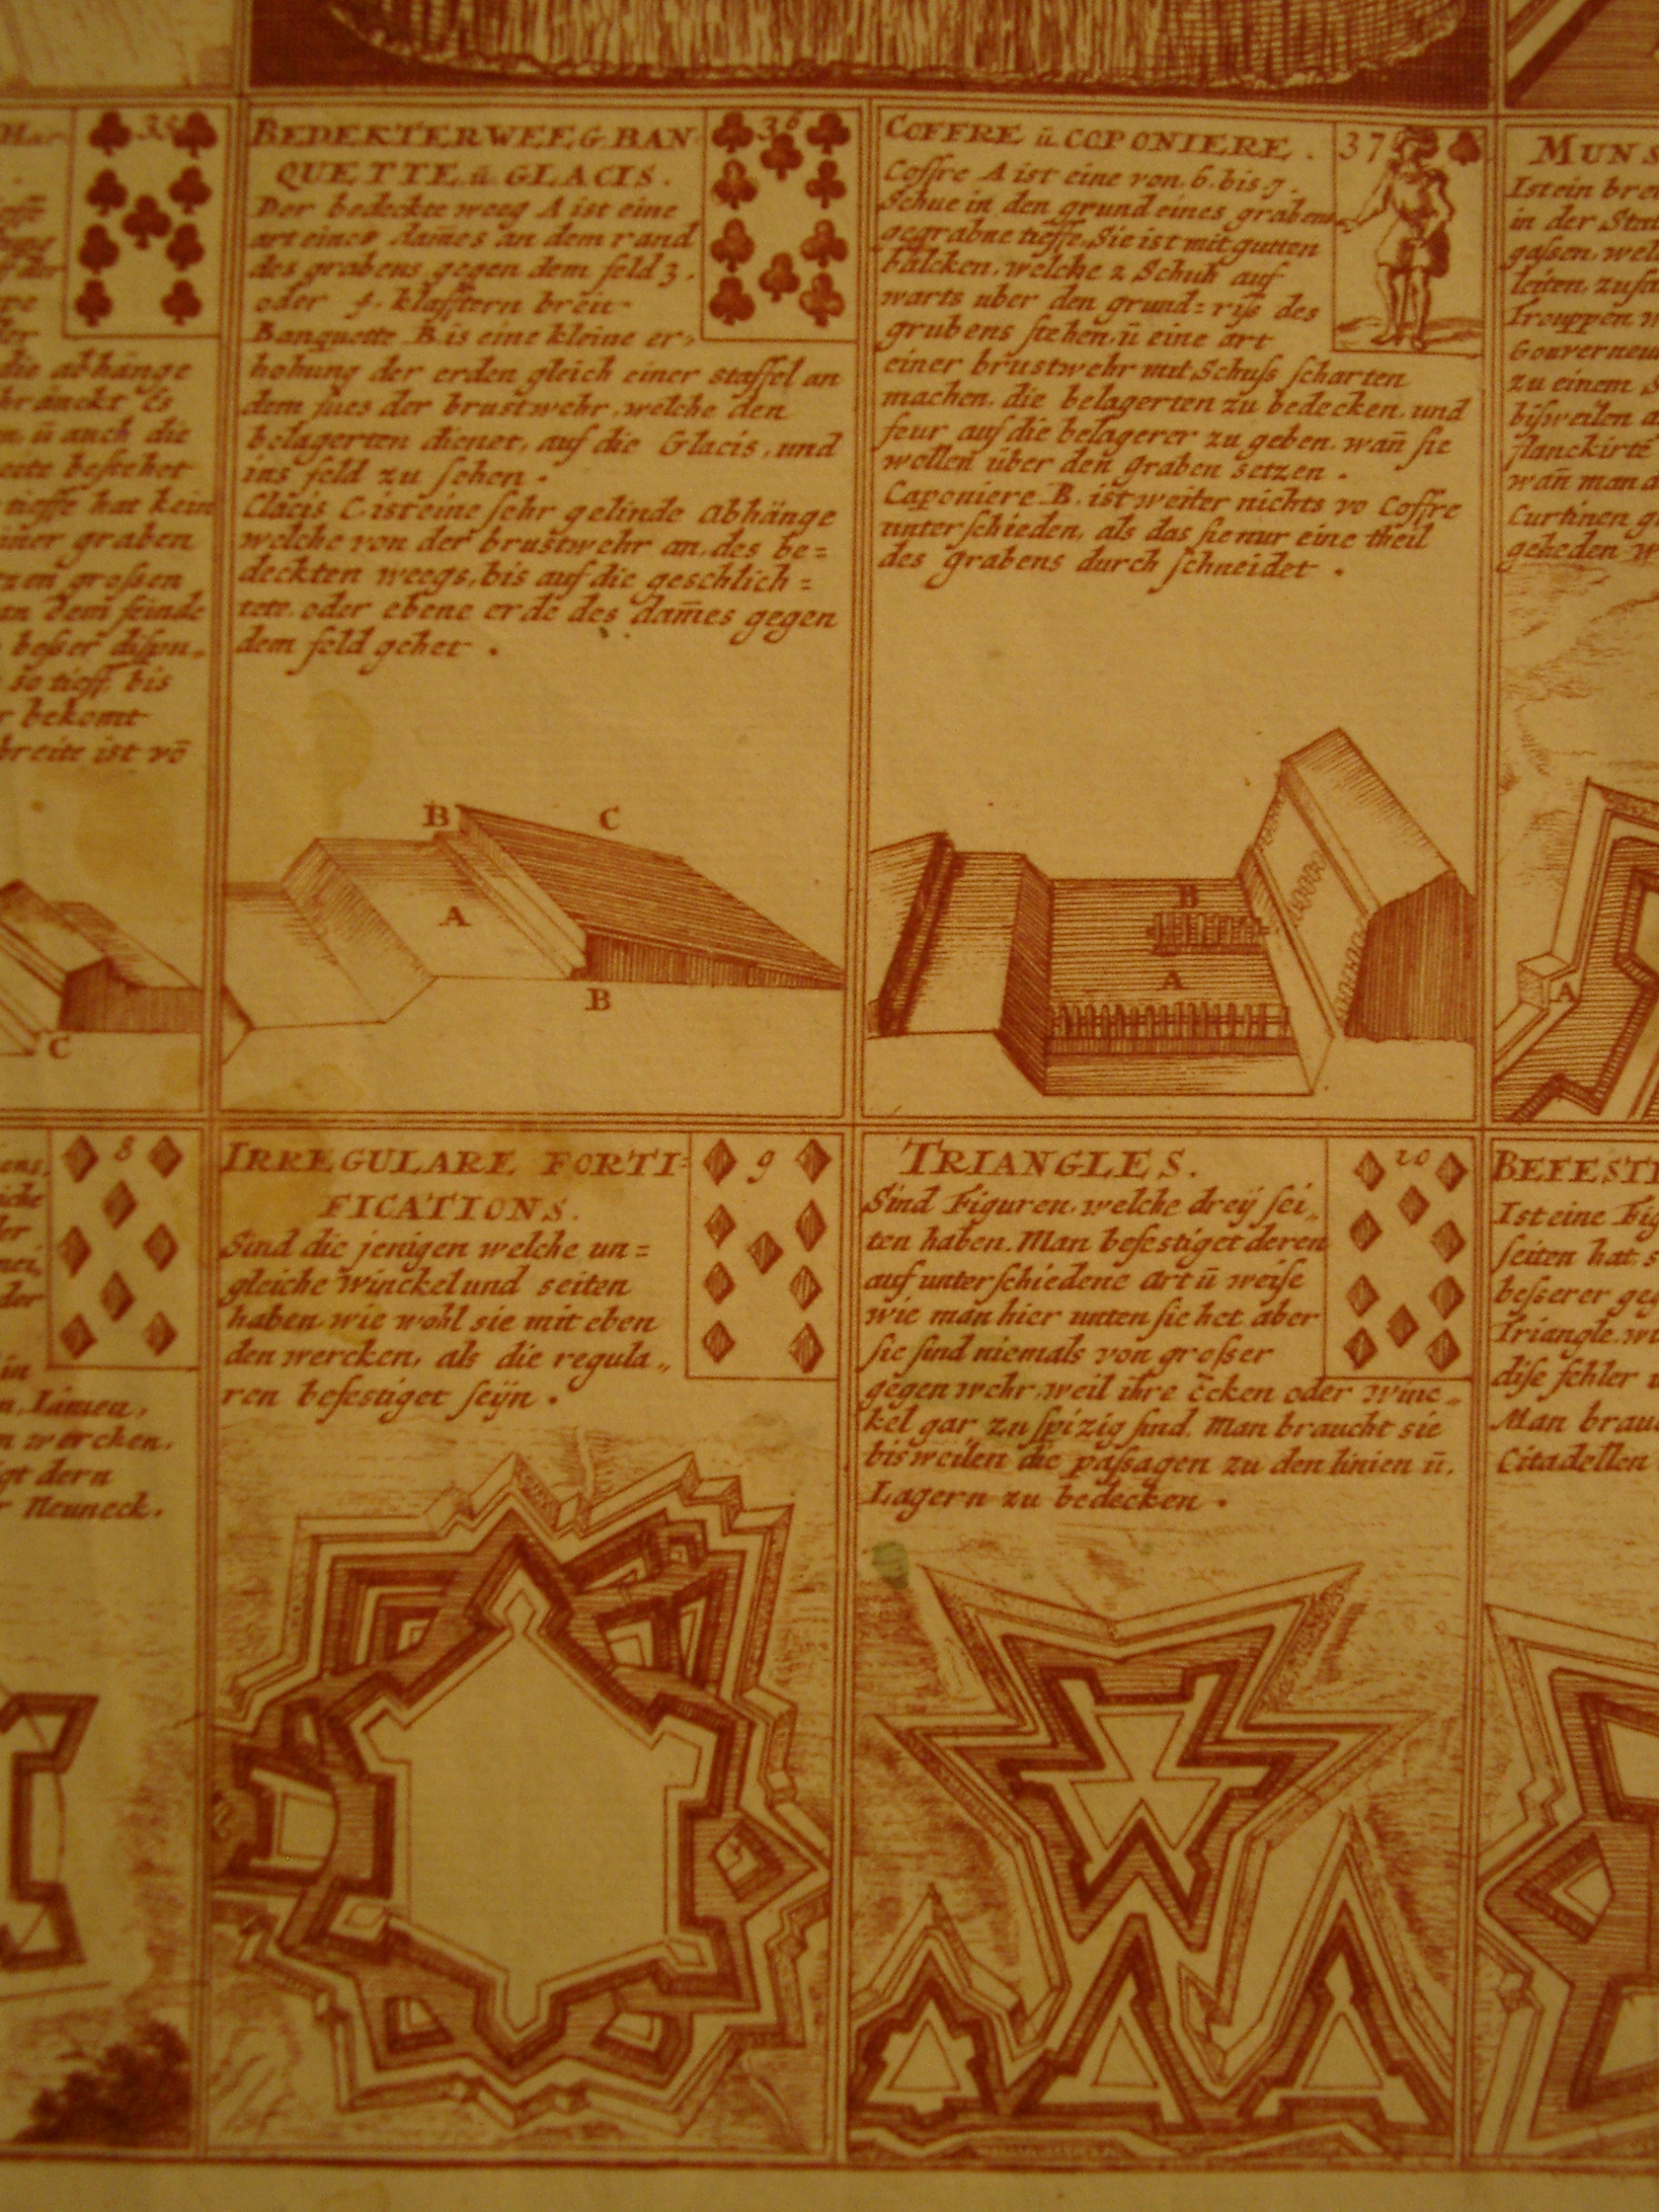 Har
35
eoffe
der
die abhänge
hränckt Es
n, ū auch die
eite bestehet
tieffe hat kein
iner graben
zen grossen
an dem feinde
besser dispu„
so tieff, bis
r bekomt
breite ist vō
C
BEDEKTER WEEG. BAN-
QUETTE. ū. GLACIS.
36
Der bedeckte weeg A ist eine
art eines dam̄es an dem rand
des grabens gegen dem feld 3.
oder 4. klafftern breit
Banquette B is eine kleine er,
hohung der erden gleich einer staffel an
dem fues der brustwehr, welche den
belagerten dienet, auf die Glacis, und
ins feld zu sehen.
Glacis C. ist eine sehr gelinde abhänge
welche von der brustwehr an, des be=
deckten weegs, bis auf die geschlich=
tete, oder ebene erde des dam̄es gegen
dem feld gehet.
B
C
A
B
COFFRE ū. COPONIERE.
37
Coffre A ist eine von. 6. bis 7.
Schue in den grund eines grabens
gegrabne tieffe, Sie ist mit gutten
balcken, welche 2 Schuh auf
warts uber den grund=riss des
grubens stehen, ū eine art
einer brustwehr mit Schuss scharten
machen, die belagerten zu bedecken, und
feur auf die belagerer zu geben. wan̄ sie
wollen über den graben setzen.
Caponiere B. ist weiter nichts vo Coffre
unterschieden, als das sie nur eine theil
des grabens durch schneidet.
B
A
MUNS
Ist ein bre
in der Sta
gassen, wel
leiten, zusa
Trouppen
Gouverneu
zu einem
bissweilen a
flanckirte
wan̄ man d
Curtinen g
geheden
A
8
n, Linien,
n wercken,
gt dern
r Neuneck.
IRREGULARE FORTI=
FICATIONS.
9
Sind die jenigen welche un=
gleiche winckel und seiten
haben, wie wohl sie mit eben
den wercken, als die regula„
ren befestiget seÿn.
TRIANGLES.
10
Sind Figuren, welche dreÿ sei„
ten haben. Man befestiget deren
auf unterschiedene art ū weise
wie man hier unten siehet aber
sie sind niemals von grosser
gegen wehr, weil ihre ecken oder winc„
kel gar zu spizig sind. Man braucht sie
bisweilen die passagen zu den linien ū.
Lagern zu bedecken.
BEFESTI
Ist eine Fig
seiten hat, s
besserer geg
Triangle, w
dise fehler
Man brauc
Citadellen